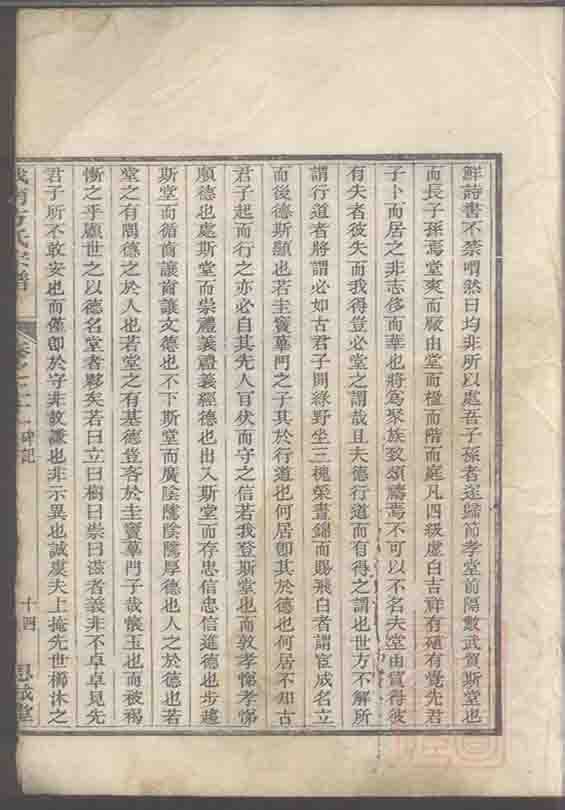 鮮詩書不禁喟然曰均非所以處吾子孫者遂歸節孝堂前隔數武買斯堂也
而長子孫焉堂爽而厰由堂而檻而階而庭凡四級虛白吉祥有碩有覺先君
子卜而居之非志侈而華也將為聚族致頌禱焉不可以不名夫堂由買得彼
有失者彼失而我得豈必堂之謂哉且夫德行道而有得之謂也世方不解所
謂行道者將謂必如古君子開綠野坐三槐榮晝錦而賜飛白者謂宦成名立
而後德斯顯也若圭竇蓽門之子其於行道也何居卽其於德也何居不知古
君子起而行之亦必自其先人百伏而守之信若我登斯堂也而敦孝悌孝悌
順德也處斯堂而崇禮義禮義經德也出入斯堂而存忠信忠信進德也步趨
斯堂而循啇讓啇讓文德也不下斯堂而廣陰騭陰騭厚德也人之於德也若
堂之有閫德之於人也若堂之有基德豈吝於圭竇蓽門子哉懷玉也而被褐
慚之乎顧世之以德名堂者夥矣若曰立曰樹曰崇曰滋者義非不卓卓見先
君子所不敢安也而僅卽於守非故謙也非示異也誠虔夫上掩先世楊休之
南方氏宗譜
卷之二 碑記
十四
思誠堂